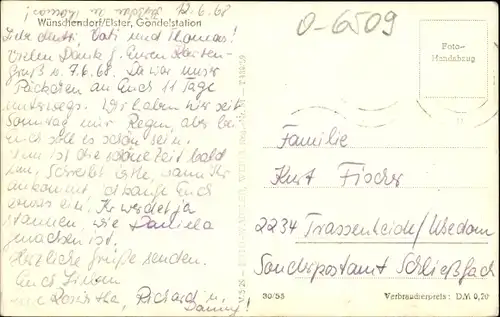 12.6.68
Wünschendorf/Elster, Gondelstation
Liebe Mutti, Vati und Thomas!
Vielen Dank f. Euren Karten-
gruß v. 7.6.68. Da war unser
Päckchen an Euch 11 Tage
unterwegs. Wir haben hier seit
Sonntag nur Regen, aber bei
Euch soll es schön sein.
Nun ist die schöne Zeit bald
um. Schreibt bitte, wann Ihr
ankommt, ich kaufe Euch
etwas ein. Ihr werdet ja
staunen, wie Daniela
gewachsen ist.
Herzliche Grüße senden.
Euch
Richard u.
0-6509
Foto-
Handabzug
Familie
Kurt Fischer
2234 Trassenheide/Usedom
Sonderpostamt Schließfach
30/55
Verbraucherpreis: DM 0,20